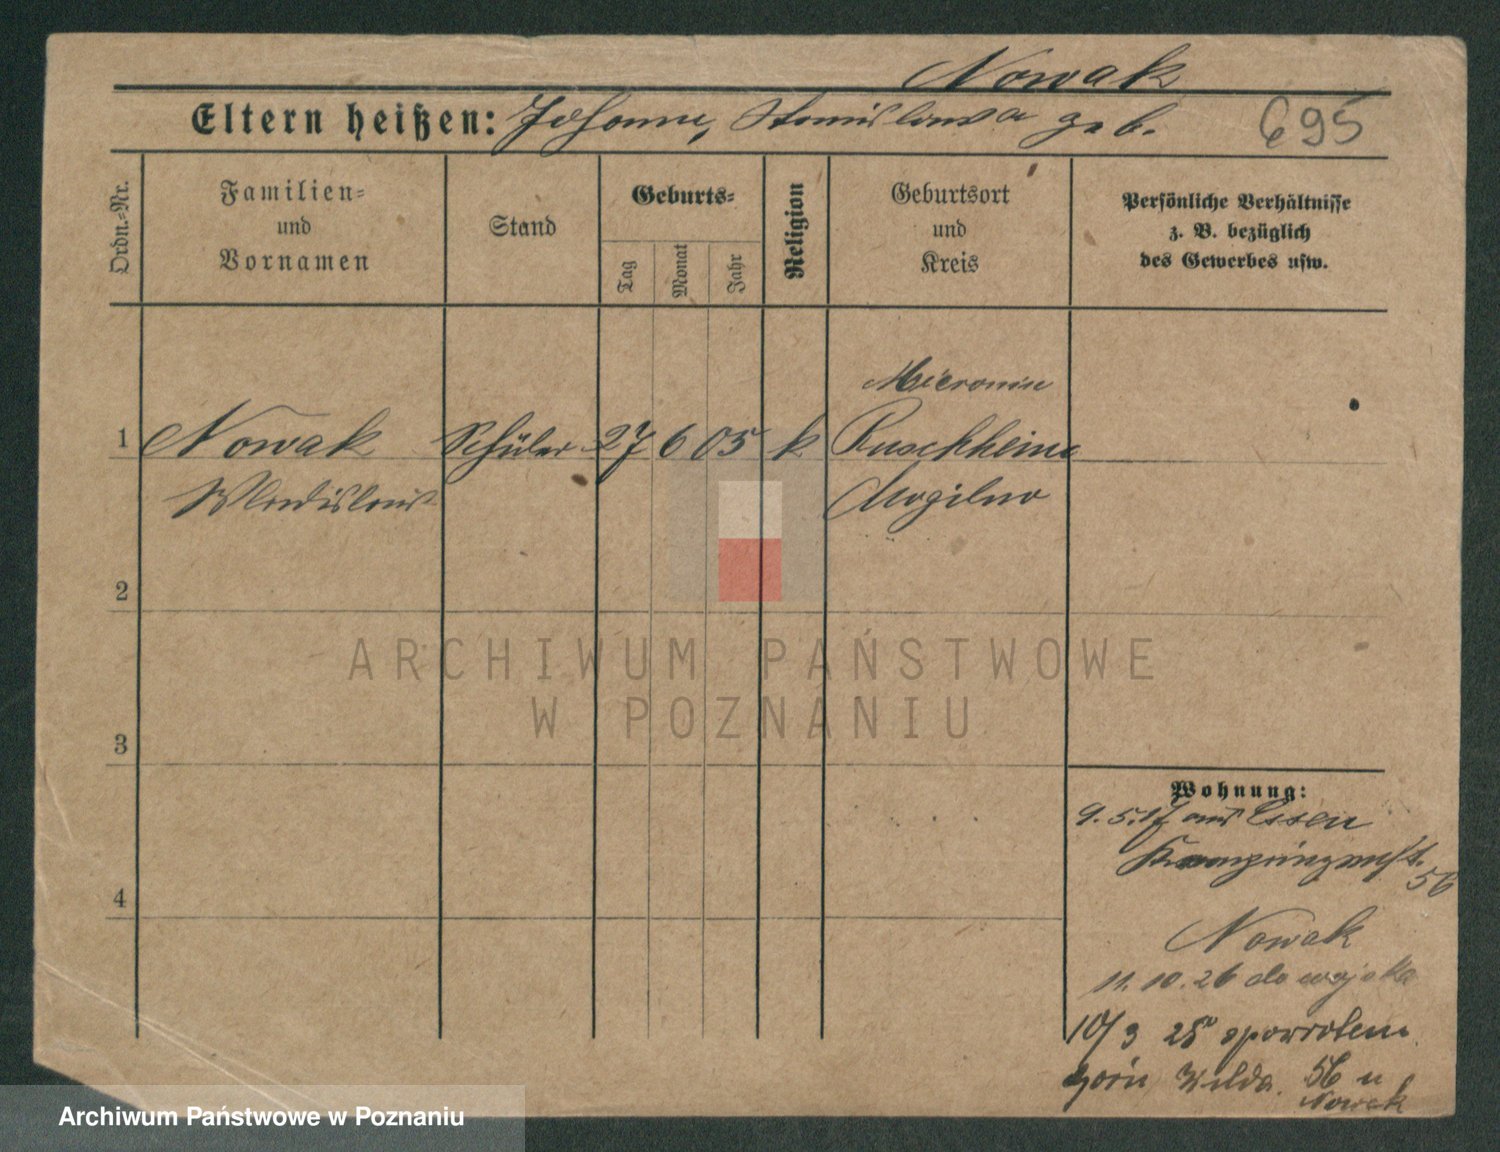 Nowak
Eltern heißen: Johann, Stanislawa geb.
695
Ordn.=Nr.
Familien=
und
Vornamen
Stand
Geburts=
Tag
Monat
Jahr
Religion
Geburtsort
und
Kreis
Persönliche Verhältnisse
z. B. bezüglich
des Gewerbes usw.
1
Nowak
Wladislaus
Schüler
27 6 05
k
Ruschheim
Mogilno
2
3
4
Wohnung:
9. 5. 17 aus Essen
56
Nowak
11. 10. 26 do wojska
10/3 28 z powrotem
górn Wilda. 56 u
Nowak
ARCHIWUM PAŃSTWOWE
W POZNANIU
Archiwum Państwowe w Poznaniu